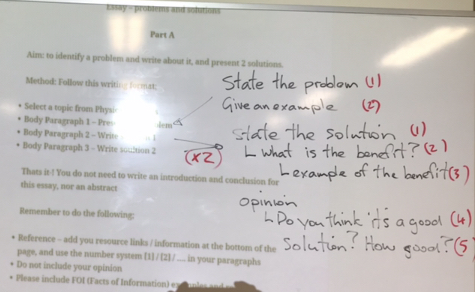 Essay - problems and solutions
Part A
Aim: to identify a problem and write about it, and present 2 solutions.
Method: Follow this writing format:
• Select a topic from
• Body Paragraph 1 -
• Body Paragraph 2 - Write
• Body Paragraph 3 - Write solution 2
Thats it! You do not need to write an introduction and conclusion for
this essay, nor an abstract
Remember to do the following:
• Reference - add you resource links / information at the bottom of the
page, and use the number system [1] / [2] / .... in your paragraphs
• Do not include your opinion
• Please include FOI (Facts of Information)
State the problem (1)
Give an example (2)
State the solution (1)
(x2)
L What is the benefit? (2)
L example of the benefit (3)
opinion
L Do you think it's a good (4)
Solution? How good? (5)